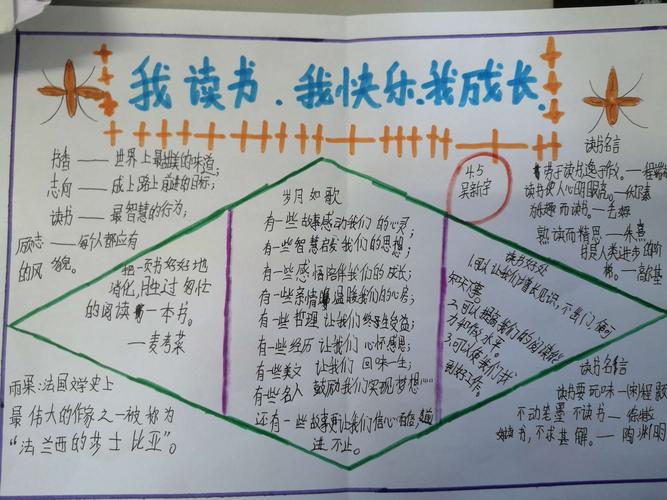 我读书、我快乐、我成长、
书香——世界上最甜美的味道;
志向——成上路上前进的目标;
读书——最智慧的行为;
励志——每个人都应有
的风貌。
4.5
吴新宇
岁月如歌
有一些故事感动我们的心灵;
有一些智慧启发我们的思想;
有一些感悟陪伴我们的成长;
有一些亲情温暖我们的心房;
有一些哲理让我们终生受益;
有一些经历让我们心怀感恩;
有一些美文让我们回味一生;
有一些名人鼓励我们实现梦想……
还有一些故事让我们信心百倍,
进不止。
把一页书好好地
消化,胜过匆忙
的阅读一本书。
—麦考莱
雨果:法国文学史上
最伟大的作家之一被称为
“法兰西的莎士比亚”。
读书名言
读书使人心明眼亮。—伏尔泰
为乐趣而读书。—毛姆
熟读而精思—朱熹
书是人类进步的阶
梯。—高尔基
读书好处
1.可以让我们增长见识,不出门便可
知天下事。
2.可以提高我们的阅读能
力和写作水平。
3.可以使我们找
到好工作。
读书名言
读书要玩味—(宋)程颢
不动笔墨不读书—徐特立
好读书,不求甚解。—陶渊明